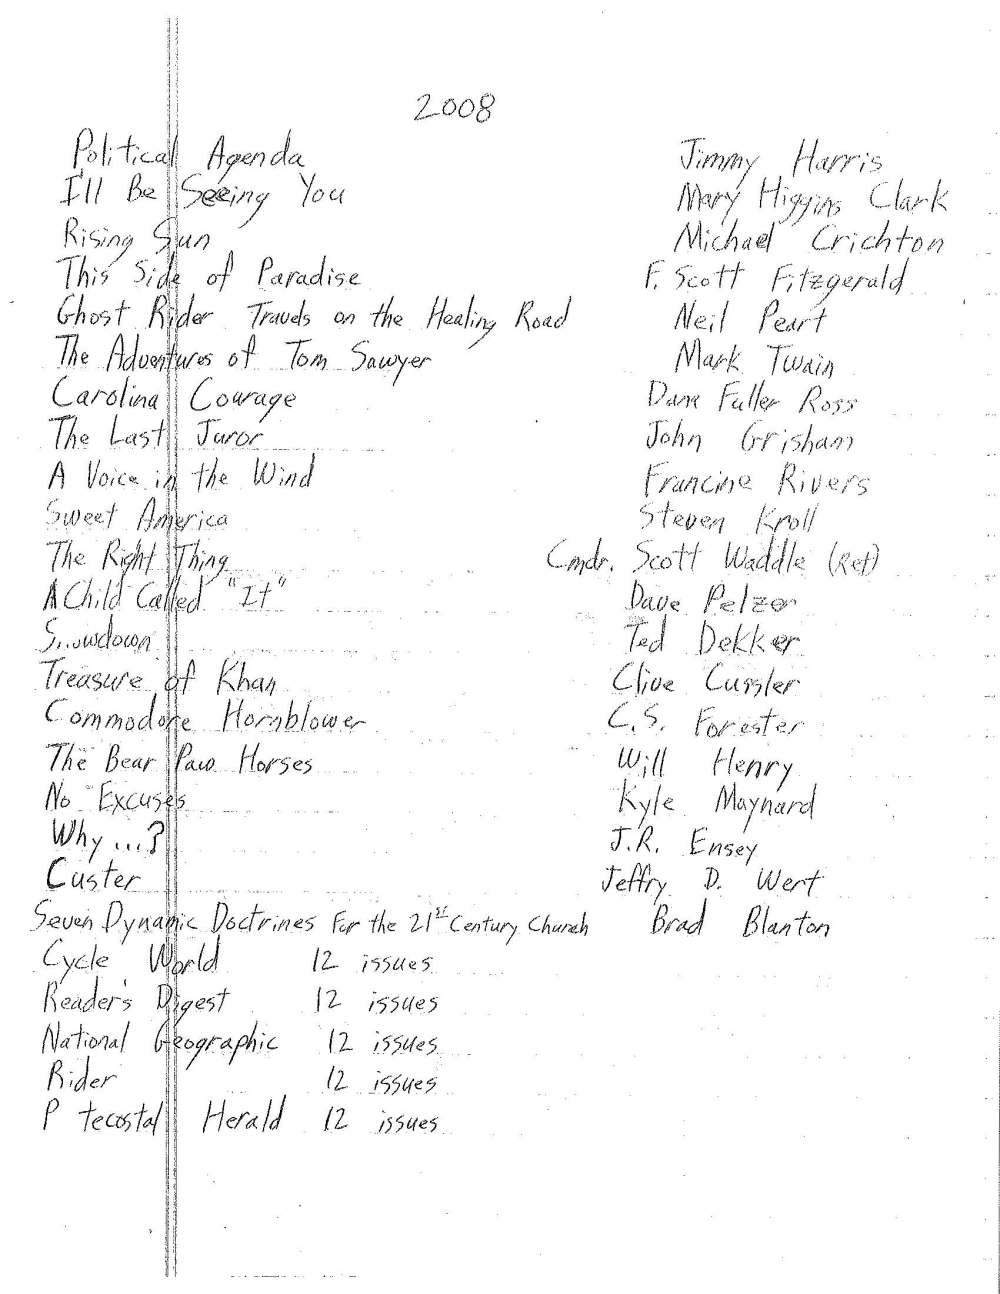 2008
Political Agenda Jimmy Harris
I'll Be Seeing You Mary Higgins Clark
Rising Sun Michael Crichton
This Side of Paradise F. Scott Fitzgerald
Ghost Rider Travels on the Healing Road Neil Peart
The Adventures of Tom Sawyer Mark Twain
Carolina Courage Dana Fuller Ross
The Last Juror John Grisham
A Voice in the Wind Francine Rivers
Sweet America Steven Kroll
The Right Thing Cmdr. Scott Waddle (Ret)
A Child Called "It" Dave Pelzer
Ted Dekker
Treasure of Khan Clive Cussler
Commodore Hornblower C.S. Forester
The Bear Paw Horses Will Henry
No Excuses Kyle Maynard
Why...? J.R. Ensey
Custer Jeffry D. Wert
Seven Dynamic Doctrines For the 21st Century Church Brad Blanton
Cycle World 12 issues
Reader's Digest 12 issues
National Geographic 12 issues
Rider 12 issues
P tecostal Herald 12 issues